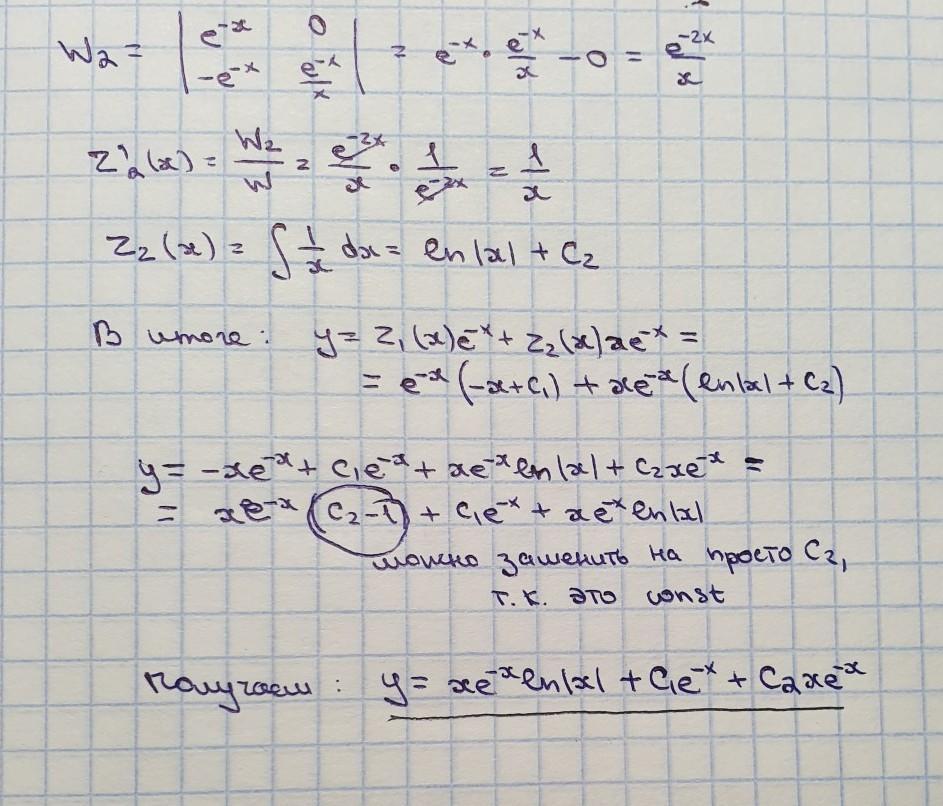 W₂ = | e⁻ˣ 0 ; -e⁻ˣ e⁻ˣ/x | = e⁻ˣ · e⁻ˣ/x - 0 = e⁻²ˣ/x
Z'₂(x) = W₂/W = e⁻²ˣ/x · 1/e⁻²ˣ = 1/x
Z₂(x) = ∫ 1/x dx = ln|x| + C₂
В итоге: y = Z₁(x)e⁻ˣ + Z₂(x)xe⁻ˣ =
= e⁻ˣ(-x+C₁) + xe⁻ˣ(ln|x| + C₂)
y = -xe⁻ˣ + C₁e⁻ˣ + xe⁻ˣ ln|x| + C₂xe⁻ˣ =
= xe⁻ˣ (C₂-1) + C₁e⁻ˣ + xe⁻ˣ ln|x|
можно заменить на просто C₂,
т.к. это const
Получаем: y = xe⁻ˣ ln|x| + C₁e⁻ˣ + C₂xe⁻ˣ